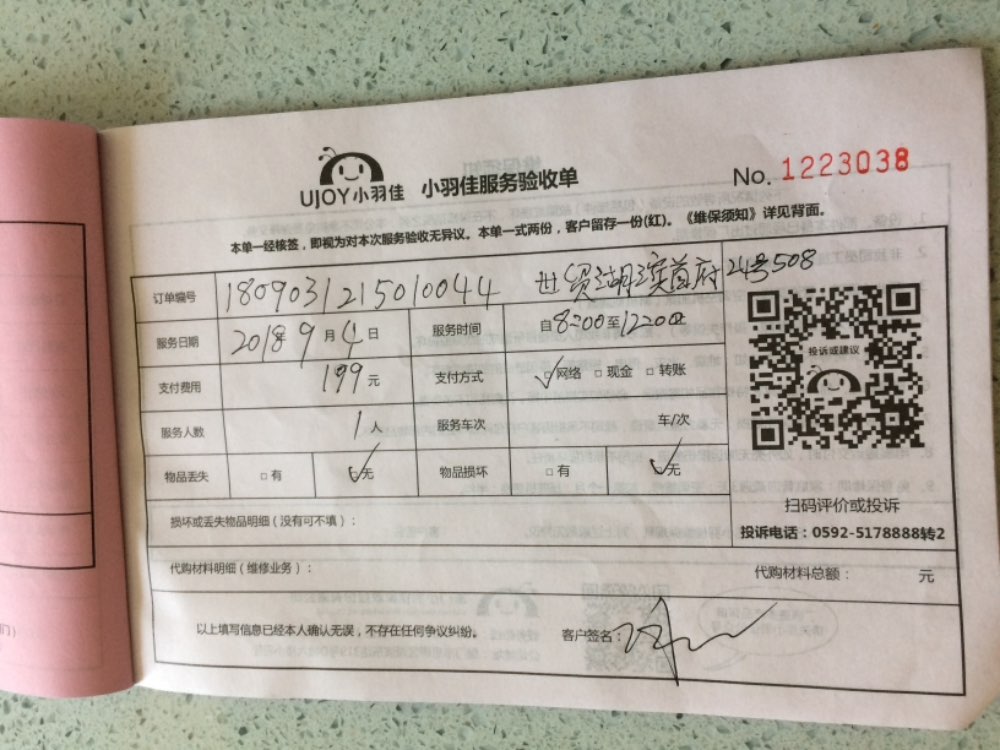 UJOY小羽佳 小羽佳服务验收单 No. 1223038
本单一经核签，即视为对本次服务验收无异议。本单一式两份，客户留存一份(红)。《维保须知》详见背面。
订单编号 180903121501 0044 世贸湖滨首府24号508
服务日期 2018年9月4日 服务时间 自8:00至12:00
支付费用 199元 支付方式 ☑网络 □现金 □转账
服务人数 1人 服务车次 车/次
物品丢失 □有 ☑无 物品损坏 □有 ☑无
投诉或建议
扫码评价或投诉
投诉电话：0592-5178888转2
损坏或丢失物品明细（没有可不填）：
代购材料明细（维修业务）： 代购材料总额： 元
以上填写信息已经本人确认无误，不存在任何争议纠纷。 客户签名：